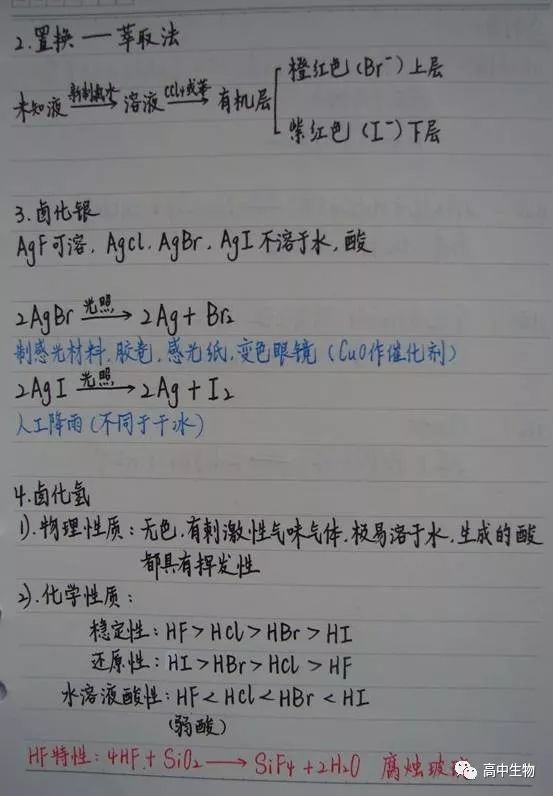 2.置换——萃取法
橙红色(Br⁻)上层
未知液 新制氯水→ 溶液 CCl₄或苯→ 有机层
紫红色(I⁻)下层
3.卤化银
AgF可溶,AgCl,AgBr,AgI不溶于水,酸
2AgBr 光照→ 2Ag+Br₂
制感光材料,胶卷,感光纸,变色眼镜(CuO作催化剂)
2AgI 光照→ 2Ag+I₂
人工降雨(不同于干冰)
4.卤化氢
1).物理性质:无色,有刺激性气味气体,极易溶于水,生成的酸
都具有挥发性
2).化学性质:
稳定性:HF>HCl>HBr>HI
还原性:HI>HBr>HCl>HF
水溶液酸性:HF<HCl<HBr<HI
(弱酸)
HF特性:4HF+SiO₂→SiF₄+2H₂O 腐蚀玻璃
高中生物